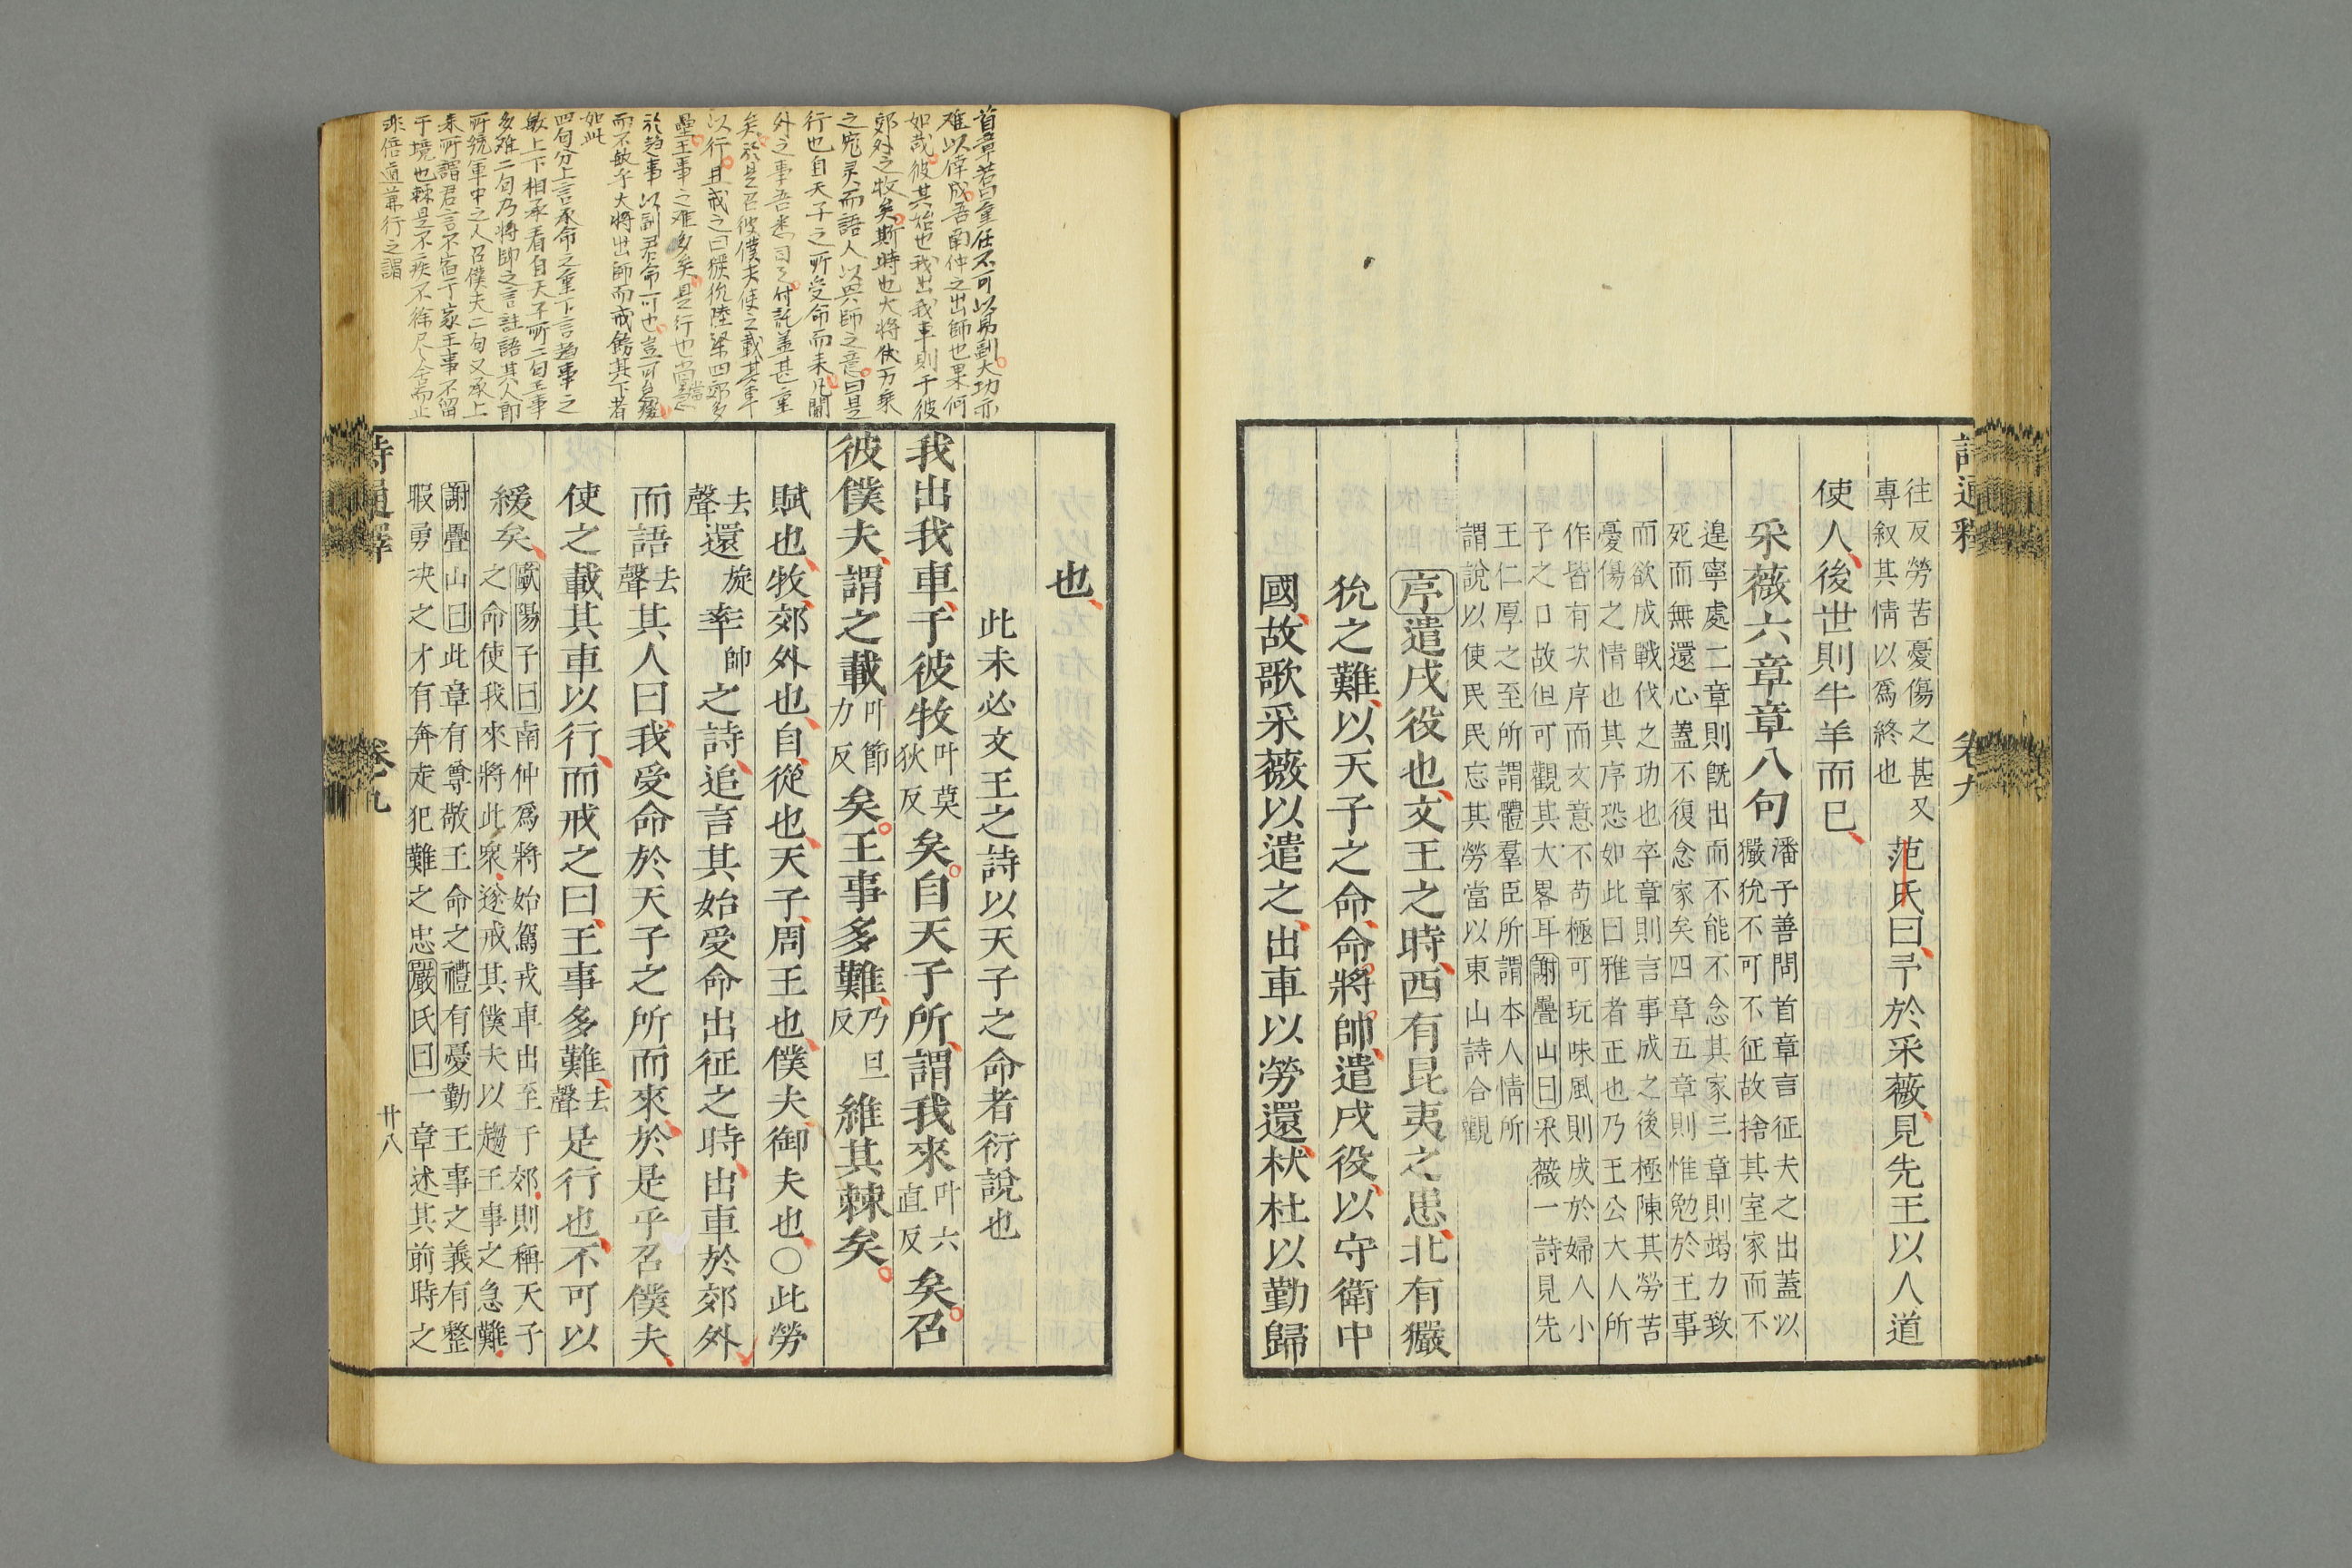 往反勞苦憂傷之甚又
專叙其情以爲終也
范氏曰予於采薇見先王以人道
使人後世則牛羊而已
采薇六章章八句
潘子善問首章言征夫之出蓋以
玁狁不可不征故捨其室家而不
遑寧處二章則旣出而不能不念其家三章則竭力致
死而無還心蓋不復念家矣四章五章則惟勉於王事
而欲成戰伐之功也卒章則言事成之後極陳其勞苦
憂傷之情也其序恐如此曰雅者正也乃王公大人所
作皆有次序而文意不苟極可玩味風則成於婦人小
子之口故但可觀其大畧耳謝疊山曰采薇一詩見先
王仁厚之至所謂體羣臣所謂本人情所
謂說以使民民忘其勞當以東山詩合觀
序遣戍役也文王之時西有昆夷之患北有玁
狁之難以天子之命命將帥遣戍役以守衛中
國故歌采薇以遣之出車以勞還杕杜以勤歸
詩通釋 卷九
也
此未必文王之詩以天子之命者衍說也
我出我車于彼牧叶莫狄反矣自天子所謂我來叶六直反矣召
彼僕夫謂之載叶節力反矣王事多難乃旦反維其棘矣
賦也牧郊外也自從也天子周王也僕夫御夫也○此勞
去聲還旋率帥之詩追言其始受命出征之時出車於郊外
而語去聲其人曰我受命於天子之所而來於是乎召僕夫
使之載其車以行而戒之曰王事多難去聲是行也不可以
緩矣
歐陽子曰南仲爲將始駕戎車出至于郊則稱天子
之命使我來將此衆遂戒其僕夫以趨王事之急難
謝疊山曰此章有尊敬王命之禮有憂勤王事之義有整
暇勇决之才有奔走犯難之忠嚴氏曰一章述其前時之
詩通釋 卷九 廿八
首章若曰重任不可以易副大功亦
难以倖成吾南仲之出師也果何
如哉彼其始也我出我車則于彼
郊外之牧矣斯時也大将
行也自天子之所受命而来凡閫
外之事吾悉司之付託盖甚重
矣於是召彼僕夫使之載其車
以行且戒之曰玁狁陸梁四郊多
壘王事之难多矣是行也
於趋事以副君命可也豈可
而不敏乎大将出師而戒其下者
如此
四句分上言承命之重下言趋事之
敏上下相承看自天子所二句王事
多难二句乃将帥之言註語其人即
所統軍中之人召僕夫二句又承上
来所謂君言不宿于家王事不留
于境也棘是不疾不徐
非倍道兼行之謂